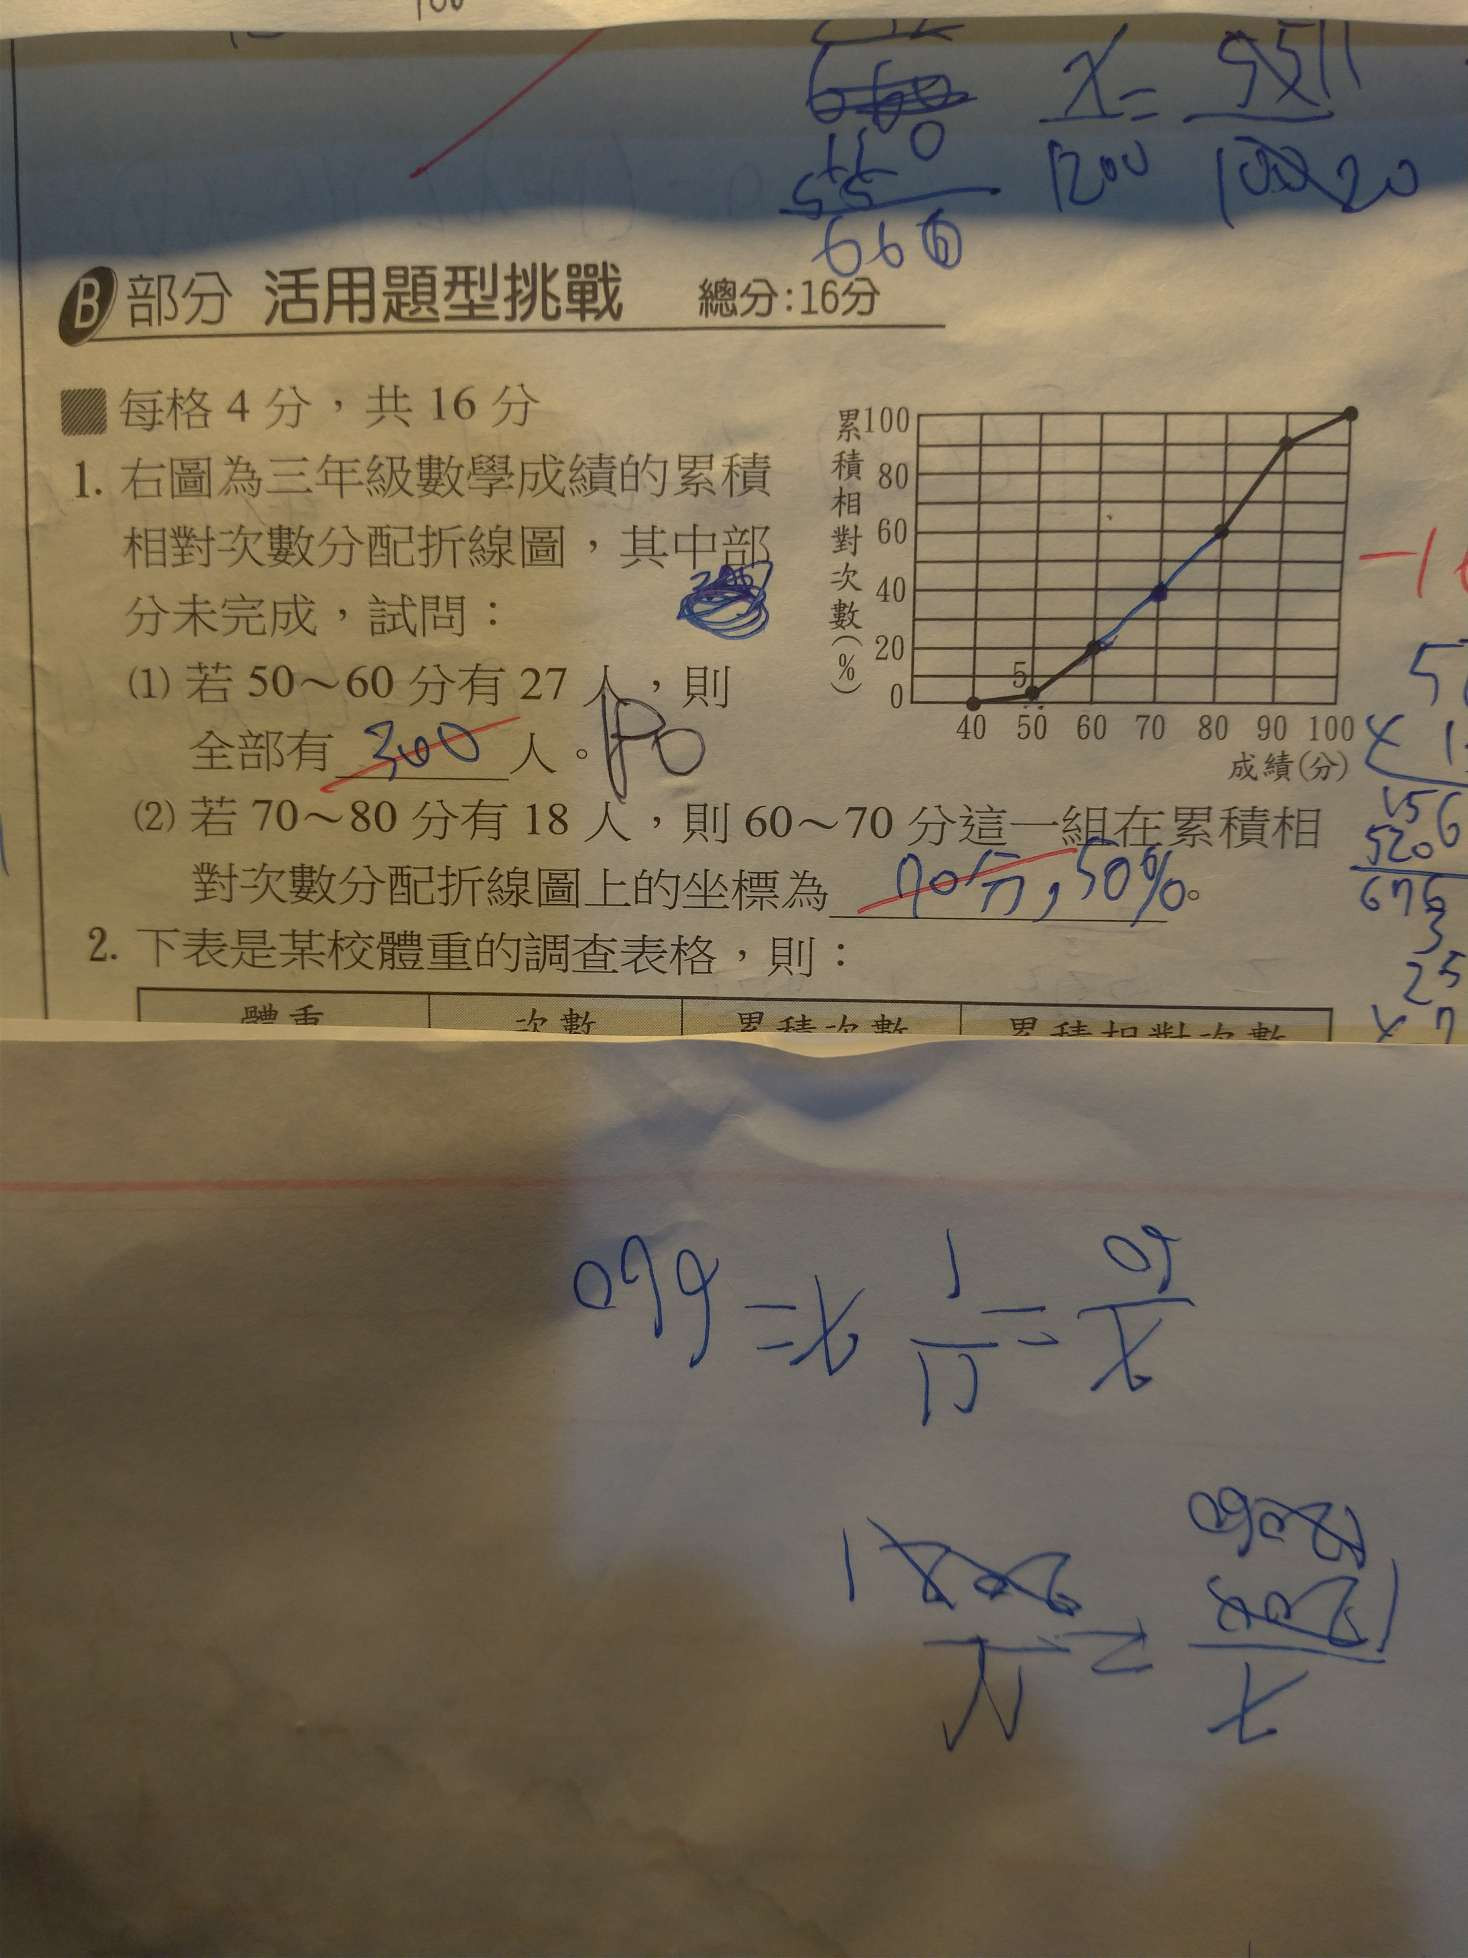 660
110
55
660
x/1200 = 55 11/100 20
B 部分 活用題型挑戰 總分:16分
每格 4 分，共 16 分
1. 右圖為三年級數學成績的累積
相對次數分配折線圖，其中部
分未完成，試問：
(1) 若 50～60 分有 27 人，則
全部有 300 人。180
累積相對次數(%)
100
80
60
40
20
0
5
40 50 60 70 80 90 100
成績(分)
(2) 若 70～80 分有 18 人，則 60～70 分這一組在累積相
對次數分配折線圖上的坐標為 70分,50%。
2. 下表是某校體重的調查表格，則：
體重 次數 累積次數 累積相對次數
156
520
676
3
25
x 7
x/60 = 11/1 x = 660